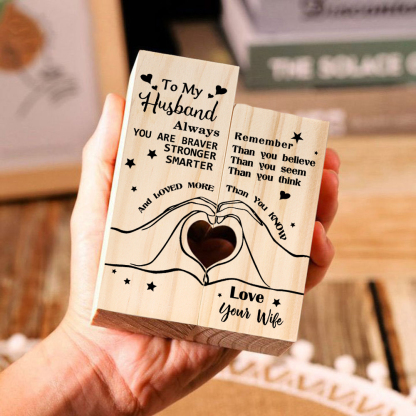 To My
Husband
Always
YOU ARE BRAVER
STRONGER
SMARTER
And LOVED MORE
Remember
Than you believe
Than you seem
Than you think
Than You KNOW
Love
Your Wife
THE SOLACE O